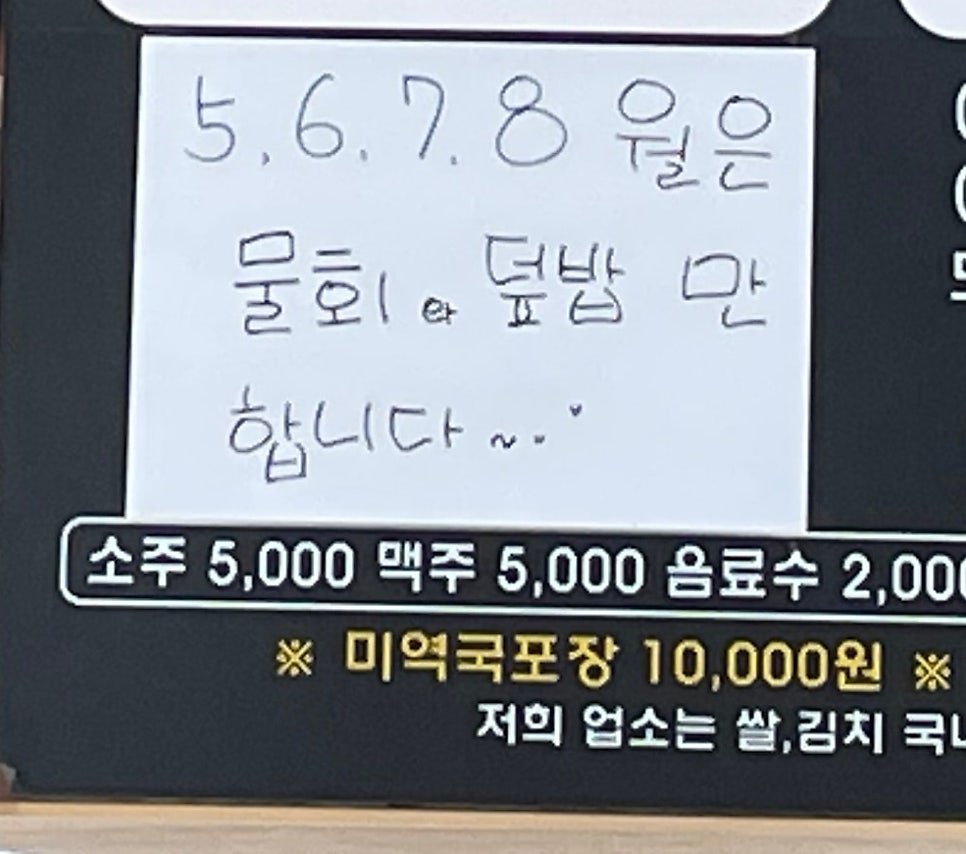 5.6.7.8 월은
물회와 덮밥 만
합니다~..
소주 5,000 맥주 5,000 음료수 2,000
※ 미역국포장 10,000원 ※
저희 업소는 쌀,김치 국